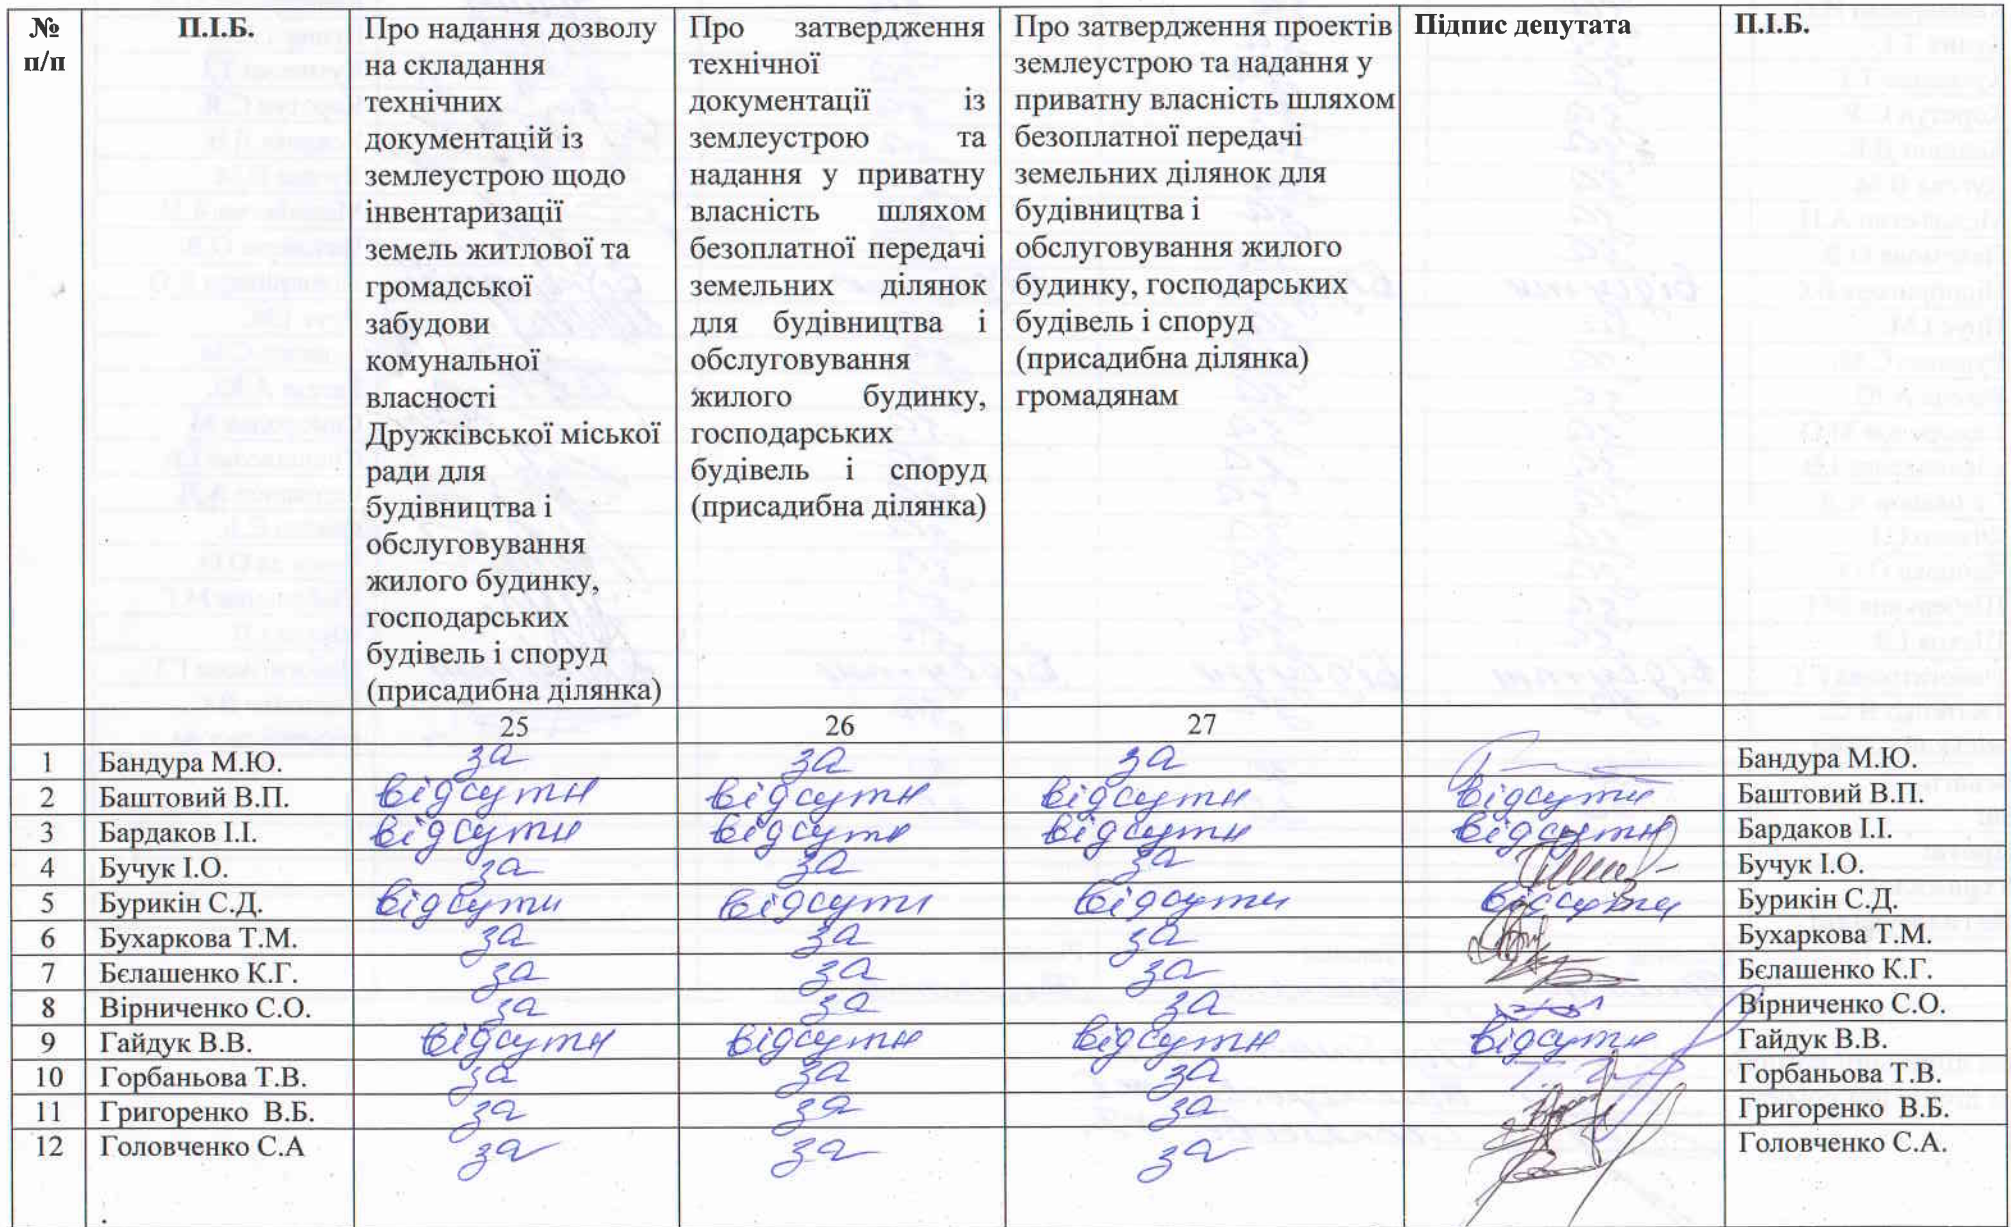 № п/п
П.І.Б.
Про надання дозволу
на складання
технічних
документацій із
землеустрою щодо
інвентаризації
земель житлової та
громадської
забудови
комунальної
власності
Дружківської міської
ради для
будівництва і
обслуговування
жилого будинку,
господарських
будівель і споруд
(присадибна ділянка)
Про затвердження
технічної
документації із
землеустрою та
надання у приватну
власність шляхом
безоплатної передачі
земельних ділянок
для будівництва і
обслуговування
жилого будинку,
господарських
будівель і споруд
(присадибна ділянка)
Про затвердження проектів
землеустрою та надання у
приватну власність шляхом
безоплатної передачі
земельних ділянок для
будівництва і
обслуговування жилого
будинку, господарських
будівель і споруд
(присадибна ділянка)
громадянам
Підпис депутата
П.І.Б.
25 26 27
1 Бандура М.Ю. за за за Бандура М.Ю.
2 Баштовий В.П. відсутн відсутн відсутн відсутн Баштовий В.П.
3 Бардаков І.І. відсутн відсутн відсутн відсутн Бардаков І.І.
4 Бучук І.О. за за за Бучук І.О.
5 Бурикін С.Д. відсутн відсутн відсутн відсутн Бурикін С.Д.
6 Бухаркова Т.М. за за за Бухаркова Т.М.
7 Бєлашенко К.Г. за за за Бєлашенко К.Г.
8 Вірниченко С.О. за за за Вірниченко С.О.
9 Гайдук В.В. відсутн відсутн відсутн відсутн Гайдук В.В.
10 Горбаньова Т.В. за за за Горбаньова Т.В.
11 Григоренко В.Б. за за за Григоренко В.Б.
12 Головченко С.А за за за Головченко С.А.